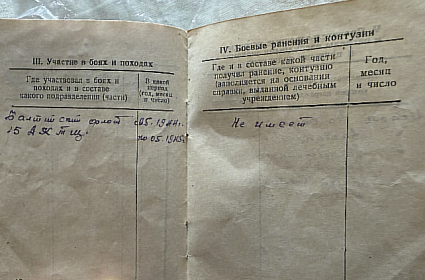 III. Участие в боях и походах
Где участвовал в боях и
походах и в составе
какого подразделения (части)
В какой
период
(год, месяц
и число)
Балтийский флот с 05.1944г.
15 по 05.1945г
IV. Боевые ранения и контузии
Где и в составе какой части
получил ранение, контузию
(заполняется на основании
справки, выданной лечебным
учреждением)
Год,
месяц
и число
Не имеет